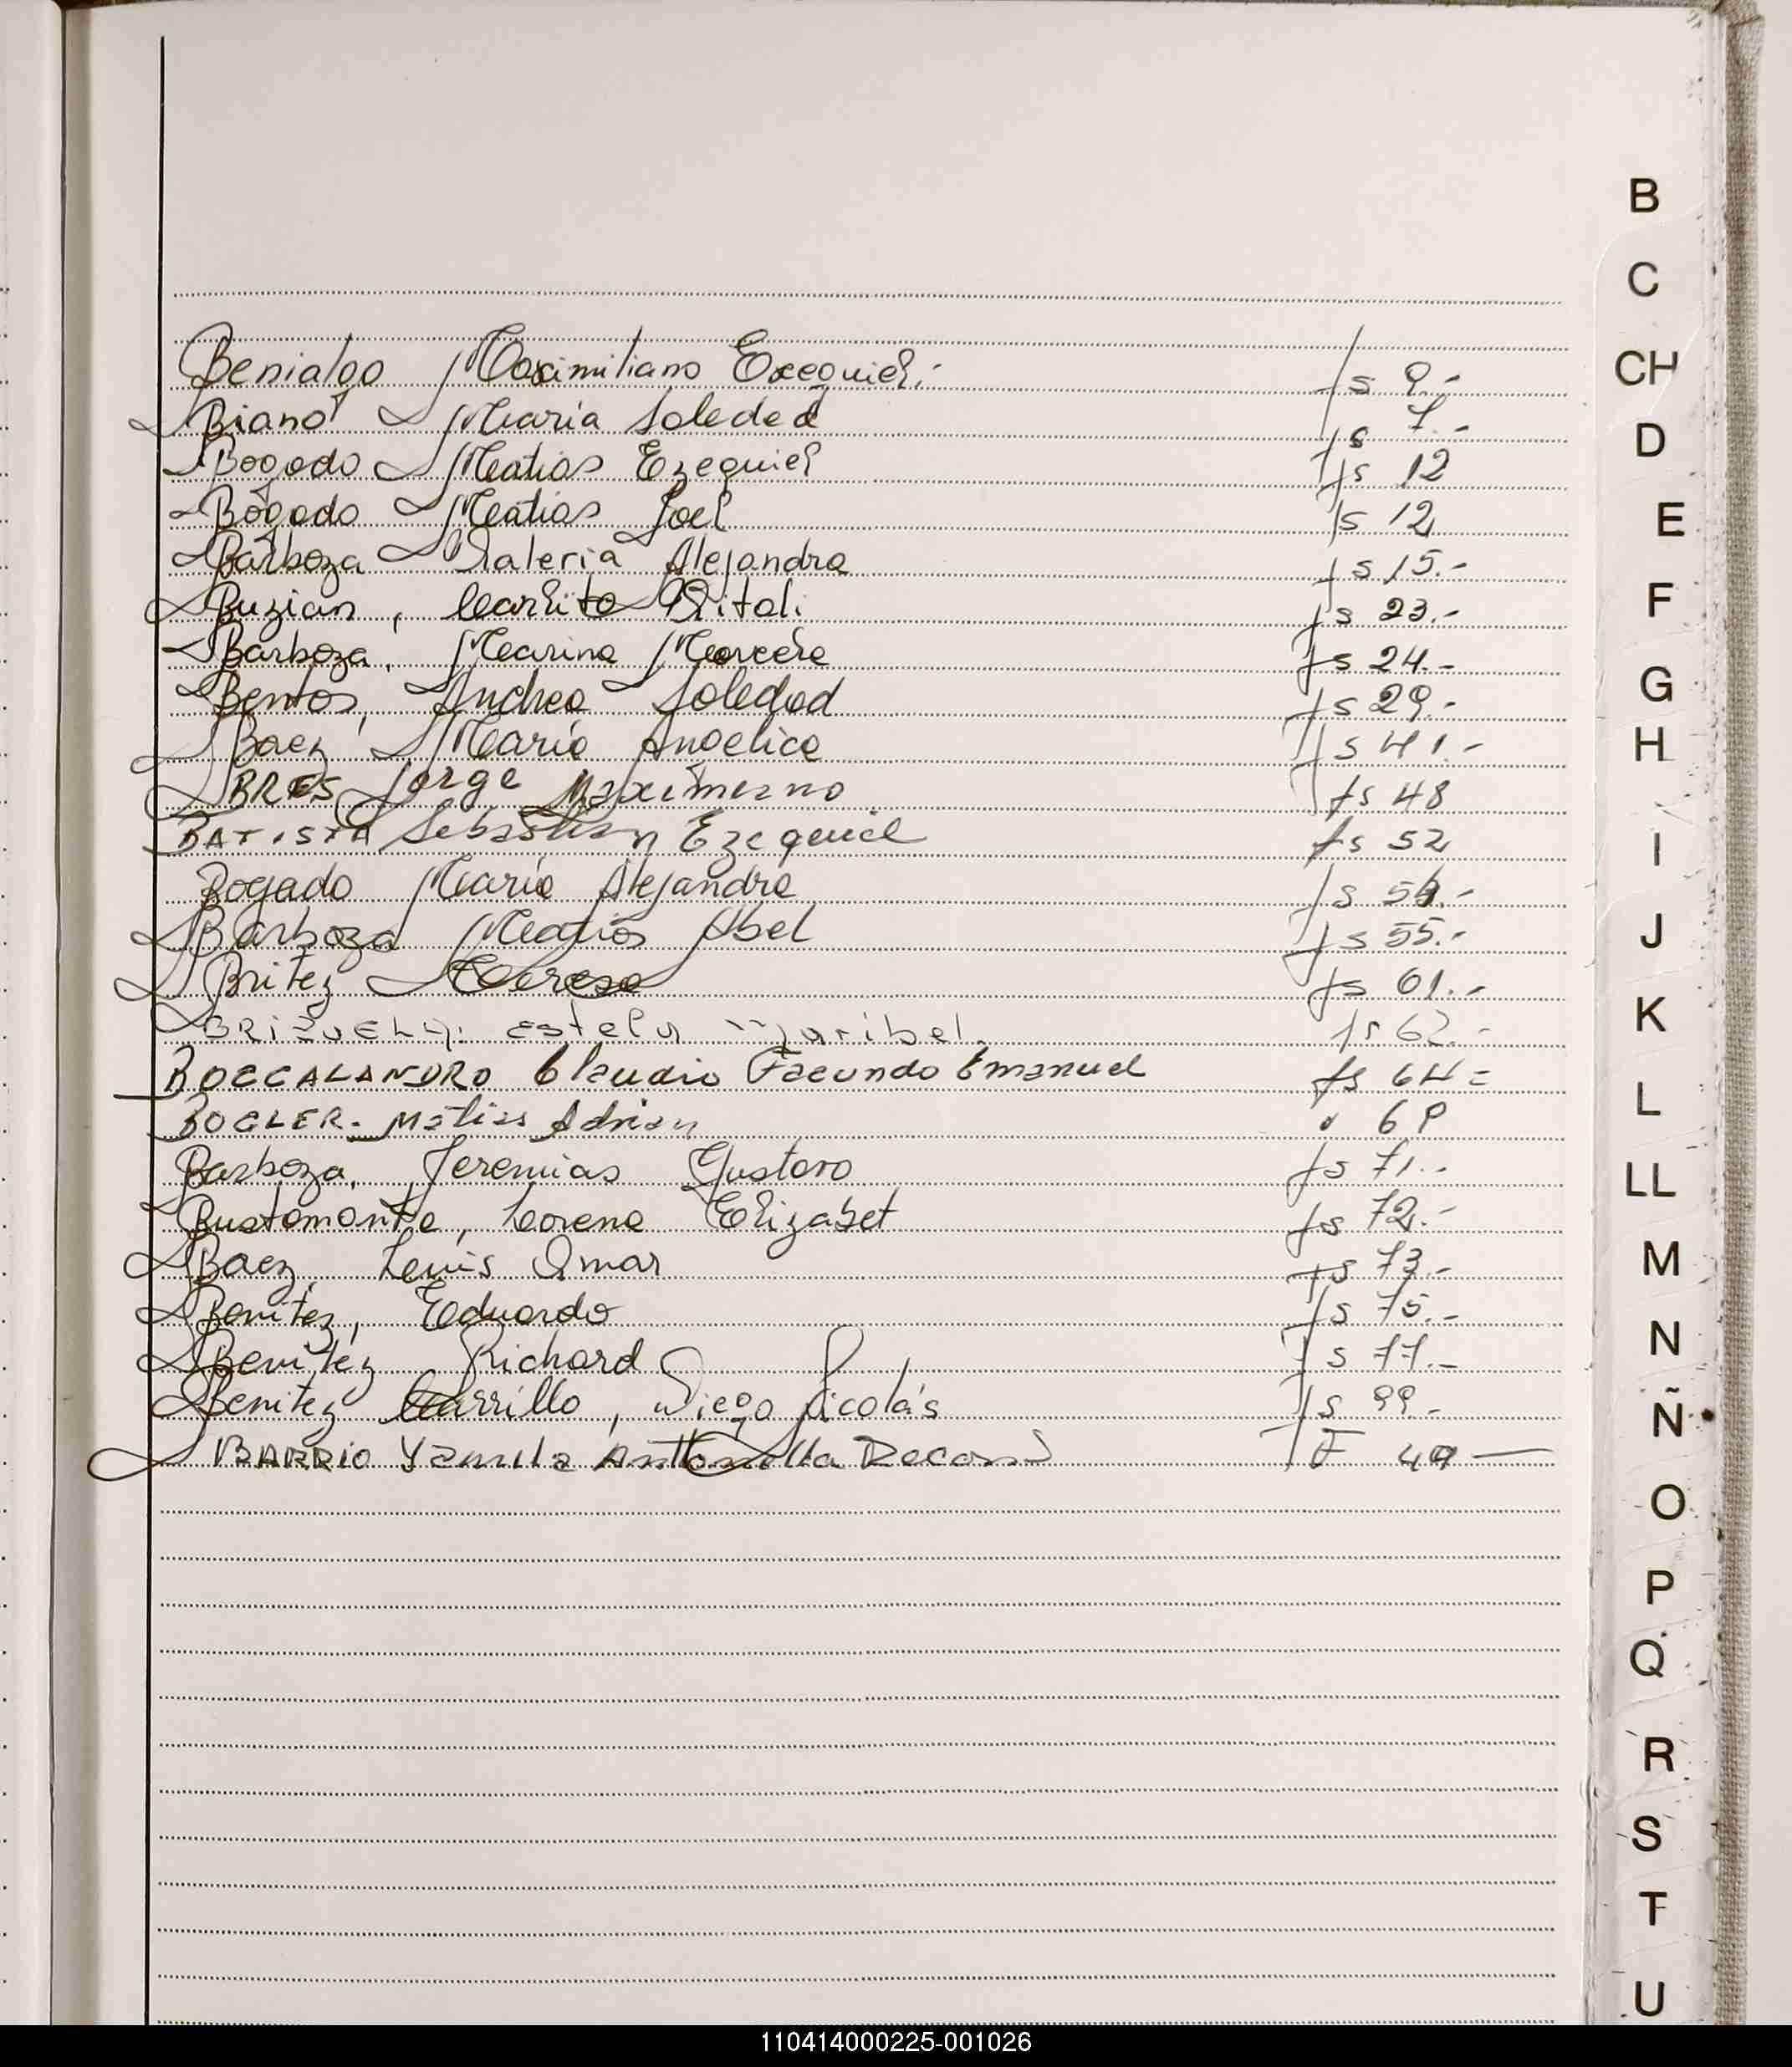 Benialgo Maximiliano Exequiel.- fs 9.-
Biano Maria Soledad fs 7.-
Bogado Matias Ezequiel fs 12
Bogado Matias Joel fs 12
Barboza Valeria Alejandra fs 15.-
Buzian, Carlito Vitali fs 23.-
Barboza, Marina Marcela fs 24.-
Bentos, Andrea Soledad fs 29.-
Baez, Maria Angelica fs 41.-
BRES Jorge Maximiano fs 48
BATISTA Sebastian Ezequiel fs 52
Bogado Maria Alejandra fs
Barboza Matias Abel fs 55.-
Britez Teresa fs 61.-
BRIZUELA: Estela Maribel. fs 62.-
BOCCALANDRO Claudio Facundo Emanuel fs 64=
BOGLER- Matias Adrian
Barboza, Jeremias Gustavo fs 71.-
Bustamante, Lorena Elizabet fs 72.-
Baez, Luis Omar fs 73.-
Benitez, Eduardo fs 75.-
Benitez Richard fs 77.-
Benitez Carrillo, Diego Nicolás fs 99.-
BARRIO Yamila Anttonella Rocano F 49 —
B
C
CH
D
E
F
G
H
I
J
K
L
LL
M
N
Ñ
O
P
Q
R
S
T
U
110414000225-001026